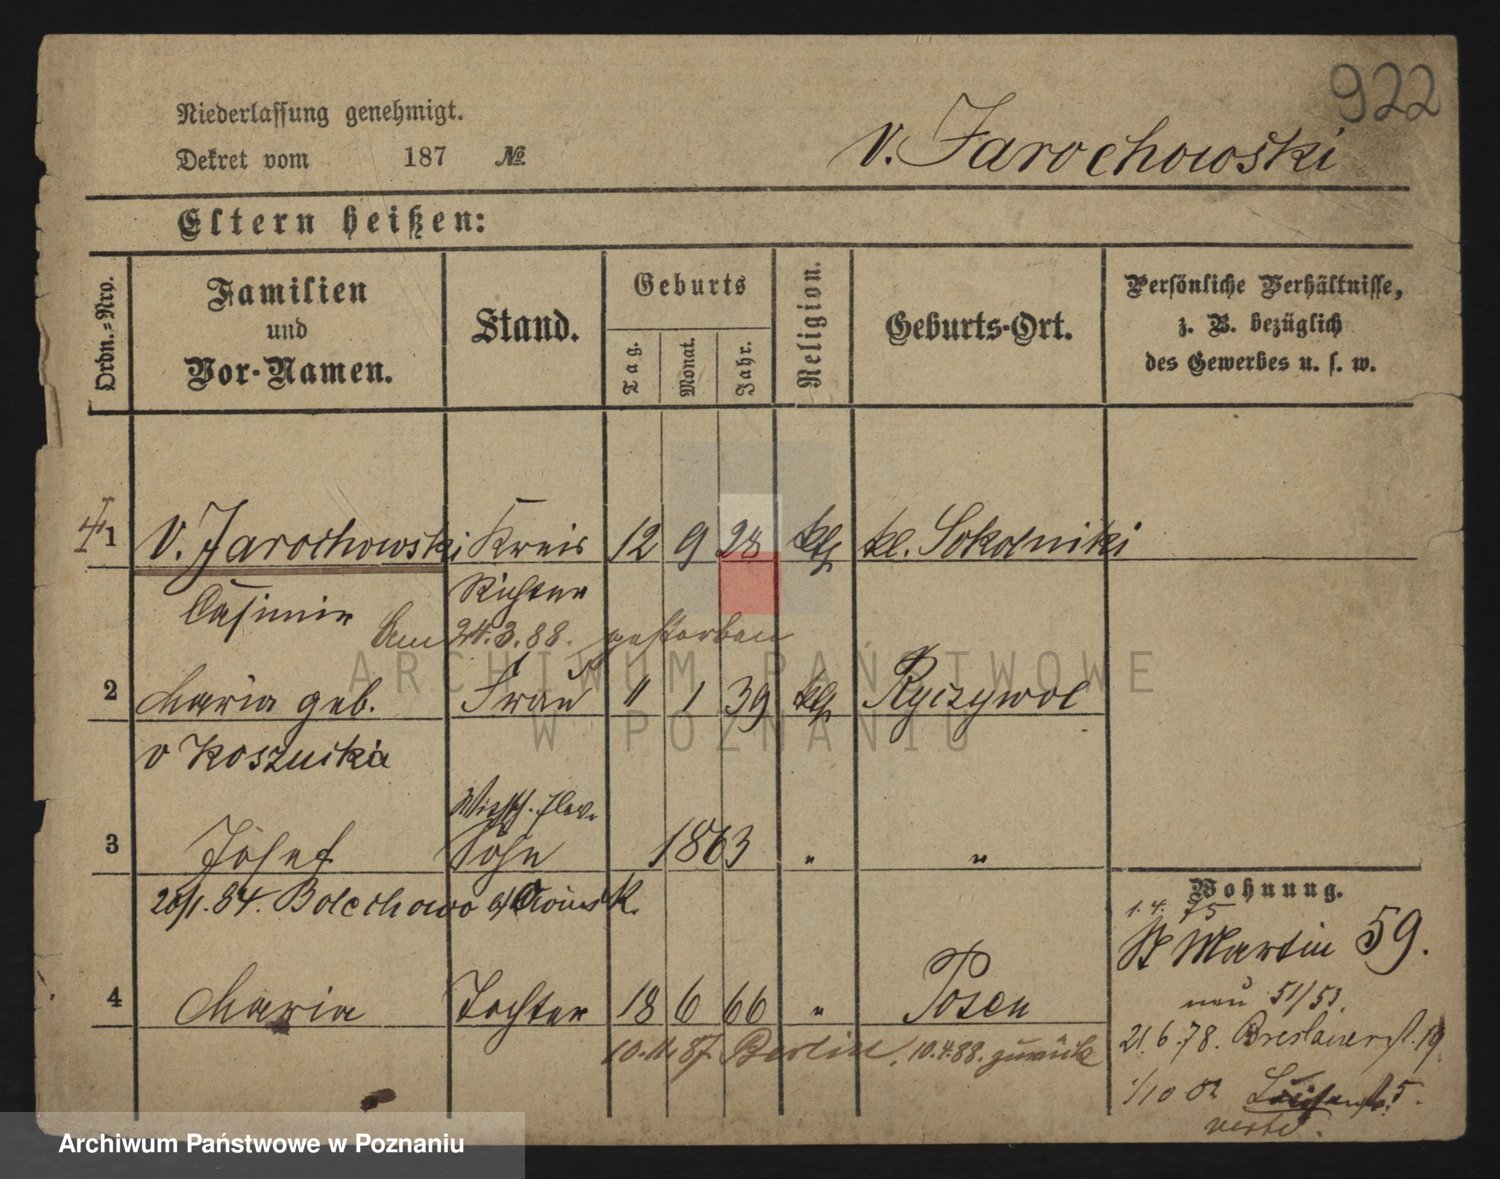 922
Niederlassung genehmigt.
Dekret vom 187 №
v. Jarochowski
Eltern heißen:
Ordn.-Nro.
Familien und Vor-Namen.
Stand.
Geburts
Tag.
Monat.
Jahr.
Religion.
Geburts-Ort.
Persönliche Verhältnisse,
z. B. bezüglich
des Gewerbes u. s. w.
1 v. Jarochowski Kreis 12 9 28 kth kl. Sokolniki
Casimir Richter
Am 24.3.88. gestorben
ARCHIWUM PAŃSTWOWE
W POZNANIU
2 Maria geb. Frau " 1 39 kth Ryczywol
v Koszucka
Wirthsch. Elev.
3 Josef Sohn 1863 " "
20/1.84. Bolechowo
Wohnung.
1.4.75
St Martin 59.
4 Maria Tochter 18 6 66 " Posen
neu 51/53.
10.11.87. Berlin, 10.4.88. zurück
21.6.78. Breslauerst. 19.
1/10 82 5.
verte.
Archiwum Państwowe w Poznaniu